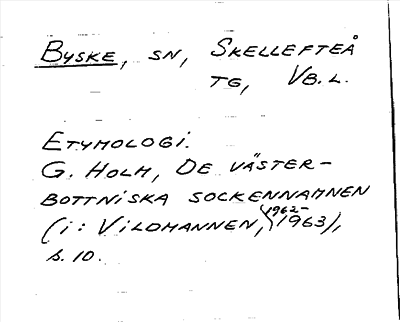 BYSKE, SN, SKELLEFTEÅ
TG, VB. L.
ETYMOLOGI.
G. HOLM, DE VÄSTER-
BOTTNISKA SOCKENNAMNEN
(i: VILDMANNEN, 1962-1963),
s. 10.